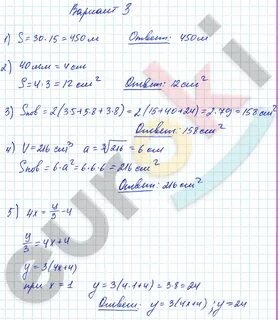 Вариант 3
1) S = 30·15 = 450 м Ответ: 450 м
2) 40 мм = 4 см
S = 4·3 = 12 см² Ответ: 12 см²
3) Sпов = 2(3·5+5·8+3·8) = 2(15+40+24) = 2·79 = 158 см²
Ответ: 158 см²
4) V = 216 см³ a = ∛216 = 6 см
Sпов = 6·a² = 6·6·6 = 216 см²
Ответ: 216 см²
5) 4x = y/3 - 4
y/3 = 4x+4
y = 3(4x+4)
при x = 1 y = 3(4·1+4) = 3·8 = 24
Ответ: y = 3(4x+4); y = 24
euroki